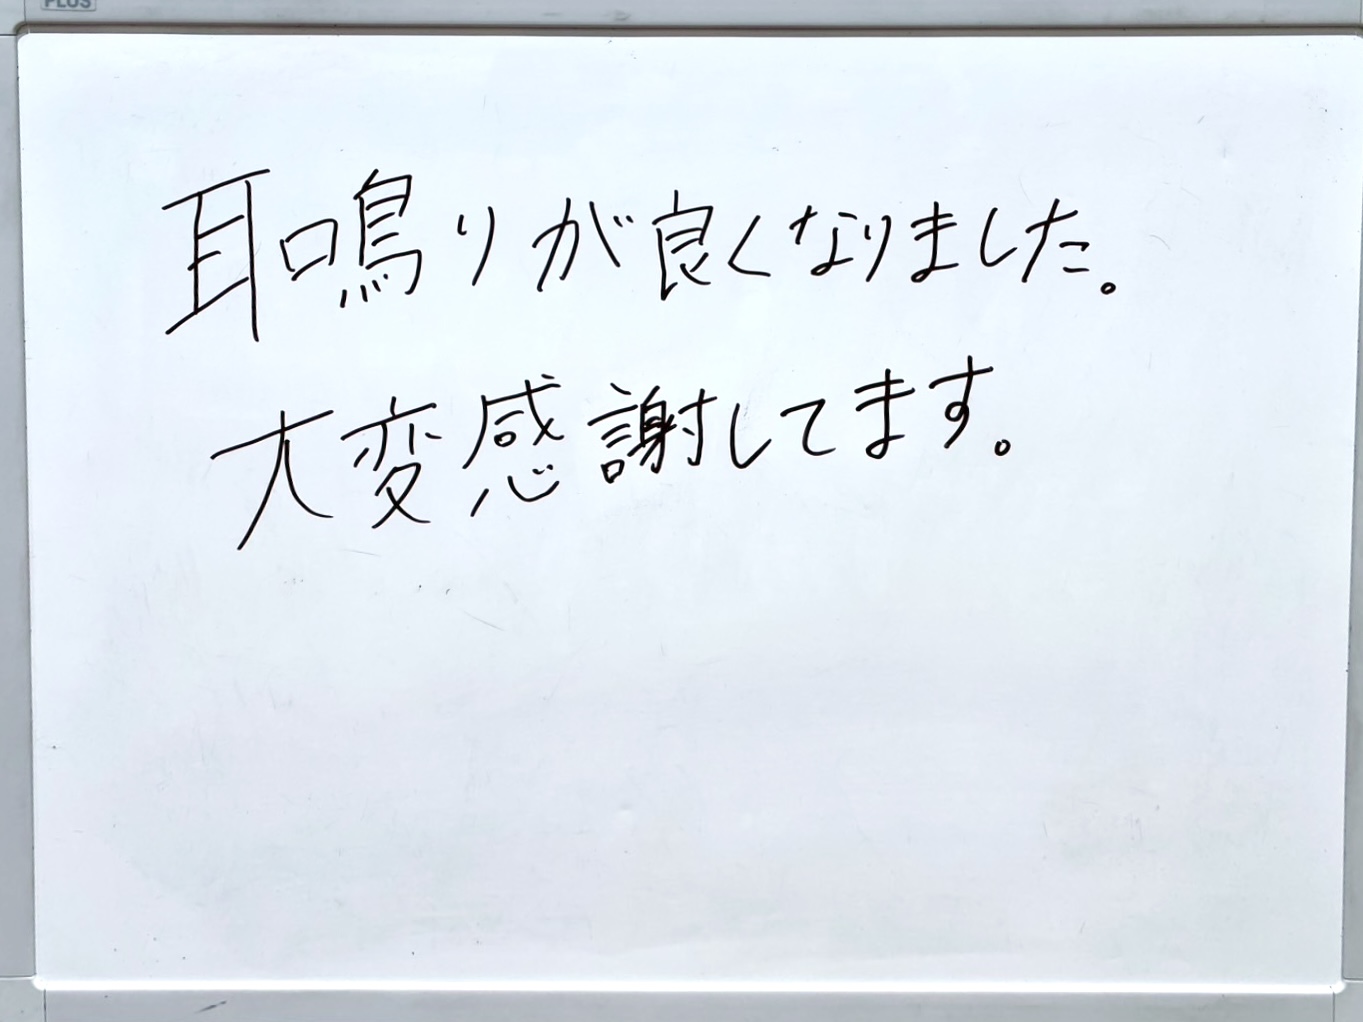 PLUS
耳鳴りが良くなりました。
大変感謝してます。